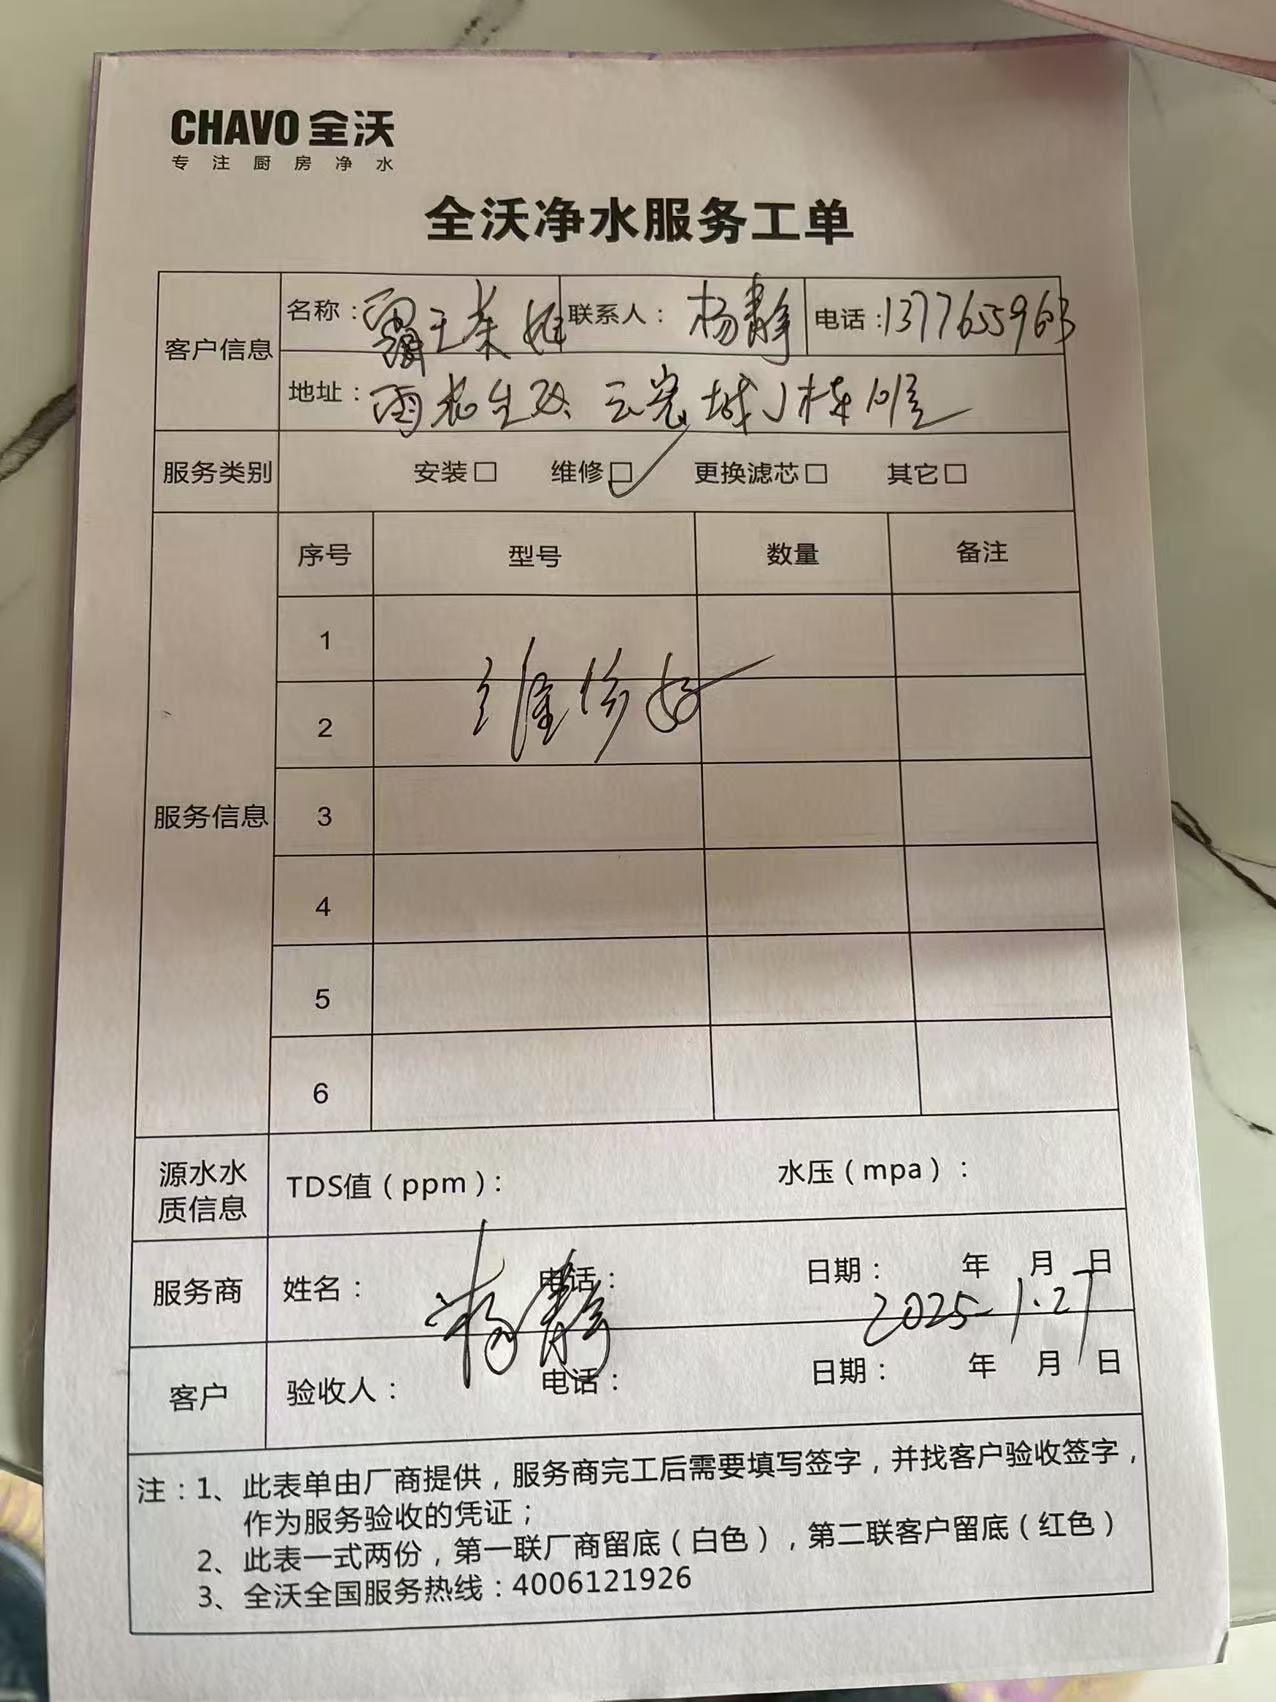 CHAVO 全沃
专注厨房净水
全沃净水服务工单
客户信息
名称：霸王茶姬 联系人：杨静 电话：13776559663
地址：雨花 云 城 1栋
服务类别 安装□ 维修□✓ 更换滤芯□ 其它□
服务信息
序号 型号 数量 备注
1
维修好
2
3
4
5
6
源水水质信息 TDS值（ppm）： 水压（mpa）：
服务商 姓名： 电话： 日期： 年 月 日
杨静 2025.1.27
客户 验收人： 电话： 日期： 年 月 日
注：1、此表单由厂商提供，服务商完工后需要填写签字，并找客户验收签字，
作为服务验收的凭证；
2、此表一式两份，第一联厂商留底（白色），第二联客户留底（红色）
3、全沃全国服务热线：4006121926